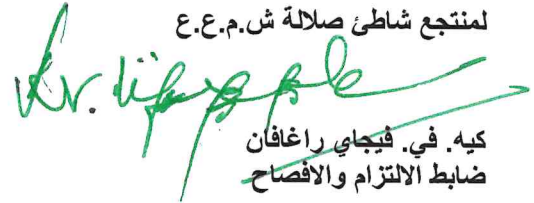 لمنتجع شاطئ صلالة ش.م.ع.ع
كيه. في. فيجاي راغافان
ضابط الالتزام والافصاح